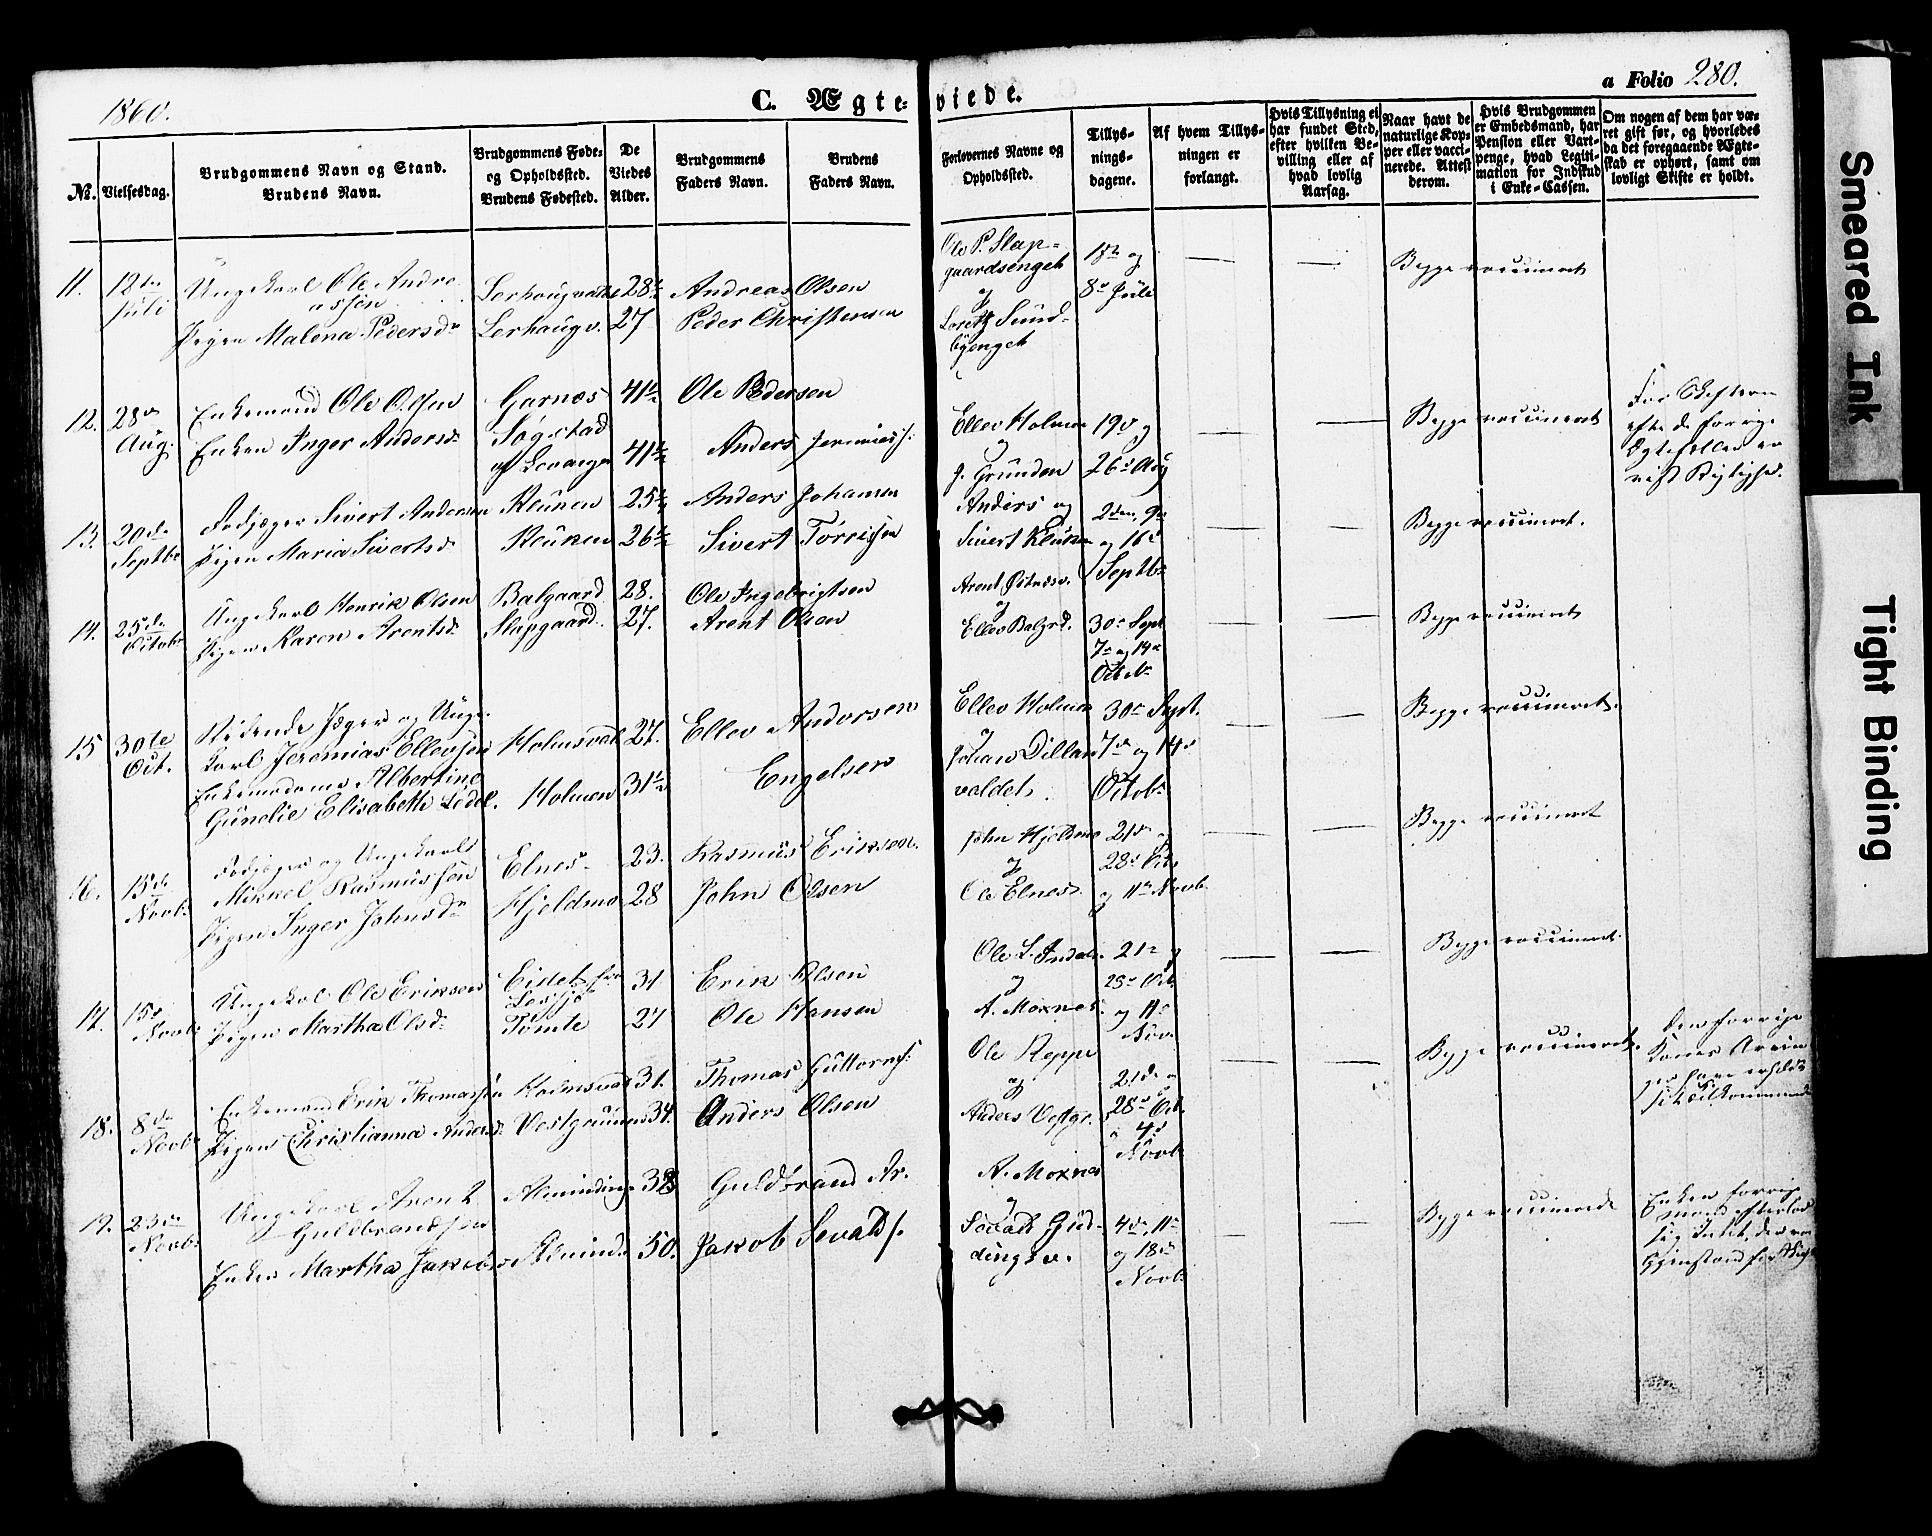 1860.
C. Ægteviede.
a Folio 280.
No.
Vielsesdag.
Brudgommens Navn og Stand.
Brudens Navn.
Brudgommens Føde-
og Opholdssted.
Brudens Fødested.
De
Viedes
Alder.
Brudgommens
Faders Navn.
Brudens
Faders Navn.
Forlovernes Navne og
Opholdssted.
Tillys-
nings-
dagene.
Af hvem Tillys-
ningen er
forlangt.
Hvis Tillysning ei
har fundet Sted,
efter hvilken Be-
villing eller af
hvad lovlig
Aarsag.
Naar havt de
naturlige Kop-
per eller vacci-
nerede. Attest
derom.
Hvis Brudgommen
er Embedsmand, har
Pension eller Vart-
penge, hvad Legiti-
mation for Indskud
i Enke-Cassen.
Om nogen af dem har væ-
ret gift før, og hvorledes
da det foregaaende Ægte-
skab er ophørt, samt om
lovligt Skifte er holdt.
11. 12te Juli
Ungekarl Ole Andre
assen
Pigen Malena Pedersdr
Lerhaugv.
28½
27
Andreas Olsen
Peder Christensen
Ole P. Slap-
gaardsenget
og
Loretz Sund-
byenget
1ste og
8de Juli
Begge vaccineret
12. 28de Aug.
Enkemand Ole Olsen
Enken Inger Andersdr
Garnæs
Søgstad
af Levanger
41½
41½
Ole Pedersen
Anders Jeremiess.
Ellev Holmen
og
J. Grunden
19de og
26de Aug
Begge vaccineret
For Skiftern
efter de forrige
Ægtefæller er
vist Rigtighed.
13. 20de Septbr
Fodjæger Sivert Andersen
Pigen Maria Sivertsdr
Kluken
Kluken
25½
26½
Anders Johansen
Sivert Torrissen
Anders og
Sivert Kluken
2den, 9de
og 16de
Septbr
Begge vaccineret.
14. 25de Octobr
Ungekarl Henrik Olsen
Pigen Karen Arentsdr
Balgaard
Slapgaard.
28.
27.
Ole Ingebrigtsen
Arent Olsen
Arent
og
Ellev Balgrd.
30te Sept
7de og 14de
Octobr
Begge vaccineret
15 30te Oct.
Ridende Jæger og Unge-
karl Jeremias Ellevsen
Enkemadame Albertine
Gunelie Elisabeth Lødel.
Holmsvald
Holmen
27.
31½
Ellev Andersen
Engelsen
Ellev Holmen
og
Johan Dillan
valdet.
30te Sept.
7de og 14de
Octobr
Begge vaccineret.
16. 15de Novbr
Fodjæger og Ungekarl
Mikkel Rasmussen
Pigen Inger Johnsdr
Elnes.
Hjeldmo
23.
28
Rasmus Eriksen.
John Olsen
John Hjeldmo
og
Ole Elnes.
21de og
28de Octb
og 11te Novb.
Begge vaccineret
17. 15de Novbr
Ungekarl Ole Eriksen
Pigen Martha Olsdr
Eidet fra
Lexsjø
Tomte
31
27
Erik Olsen
Ole Hansen
Ole L. Indal
og
A. Moxnes.
21de og
28de Octb.
og 11te
Nov.
Begge vaccineret.
18. 8de Novbr
Enkemand Erik Thomassen
Pigen Christianna Andersdr
Holmsvald
Vestgrunden
31.
34.
Thomas Guttorms.
Anders Olsen
Ole Reppe
og
Anders Vestgr.
21de
28de Oct.
4de
Novb.
Begge vaccineret.
Den forrige
Kones Arvin-
ger have erholdt
sit tilkommende
19. 23de Novbr
Ungekarl Arent
Guldbrandsen
Enken Martha Jakobsdr
Alminding
Alminds.
38
50.
Guldbrand Ar.
Jakob Sevalds.
A. Moxnes
og
Sevald Gud-
dingsv.
4de, 11te
og 18de
Novb.
Begge vaccinerede
Enkens forrige
Mand efterlod
sig Intet, der var
Gjenstand for Skifte
Smeared Ink
Tight Binding